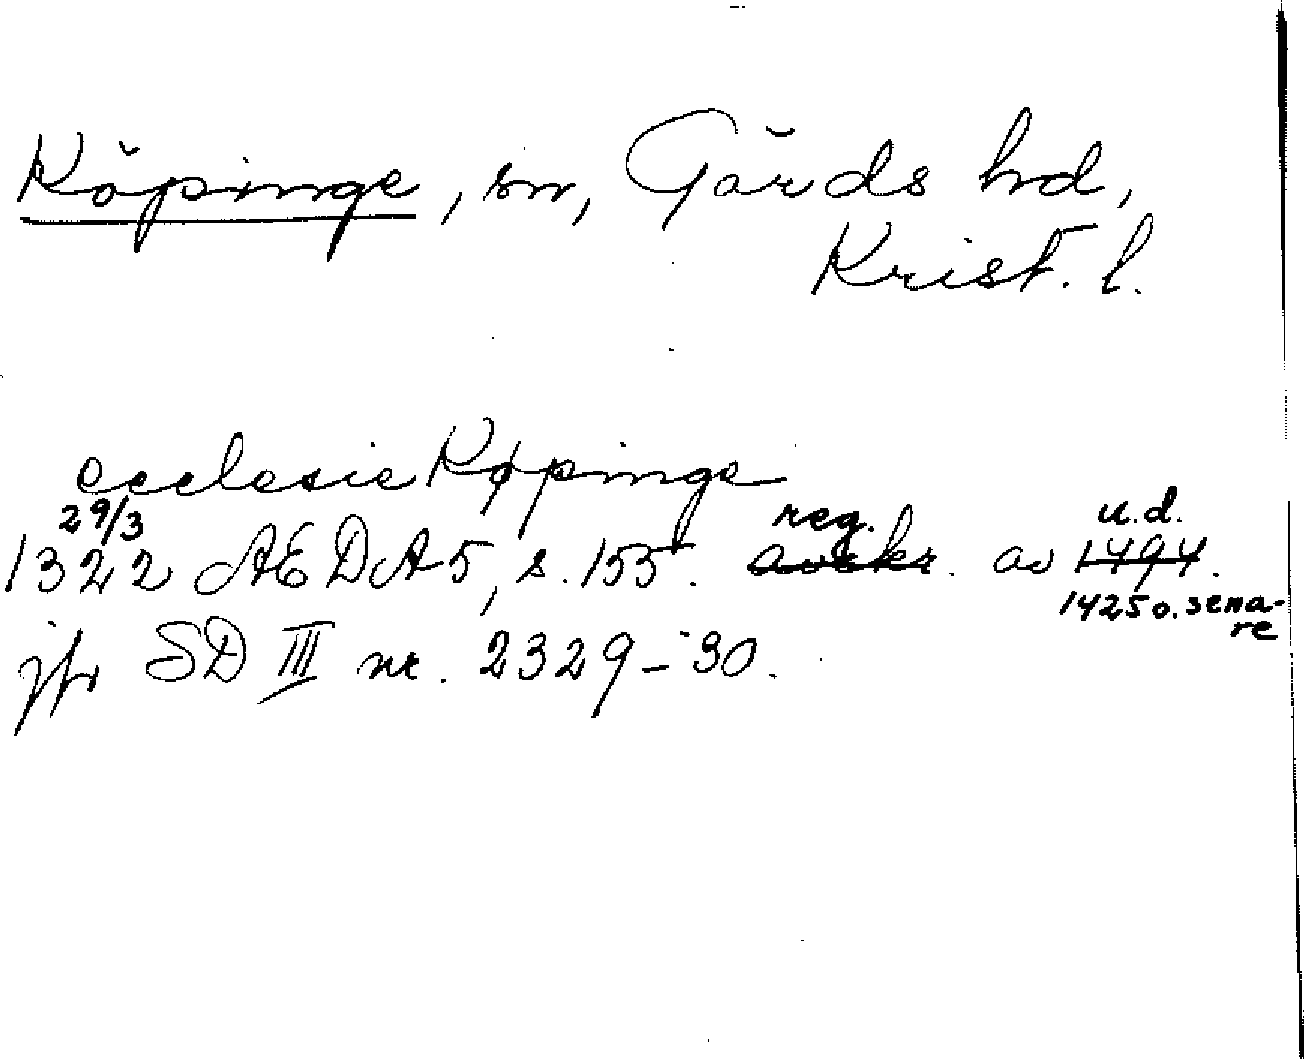 Köpinge, sn, Gärds hd,
Krist. l.
ecclesie Køpinge
29/3 reg. u.d.
1322 AEDA5, s. 155. avskr. av 1494.
1425 o. sena-
re
jfr SD III nr. 2329-30.